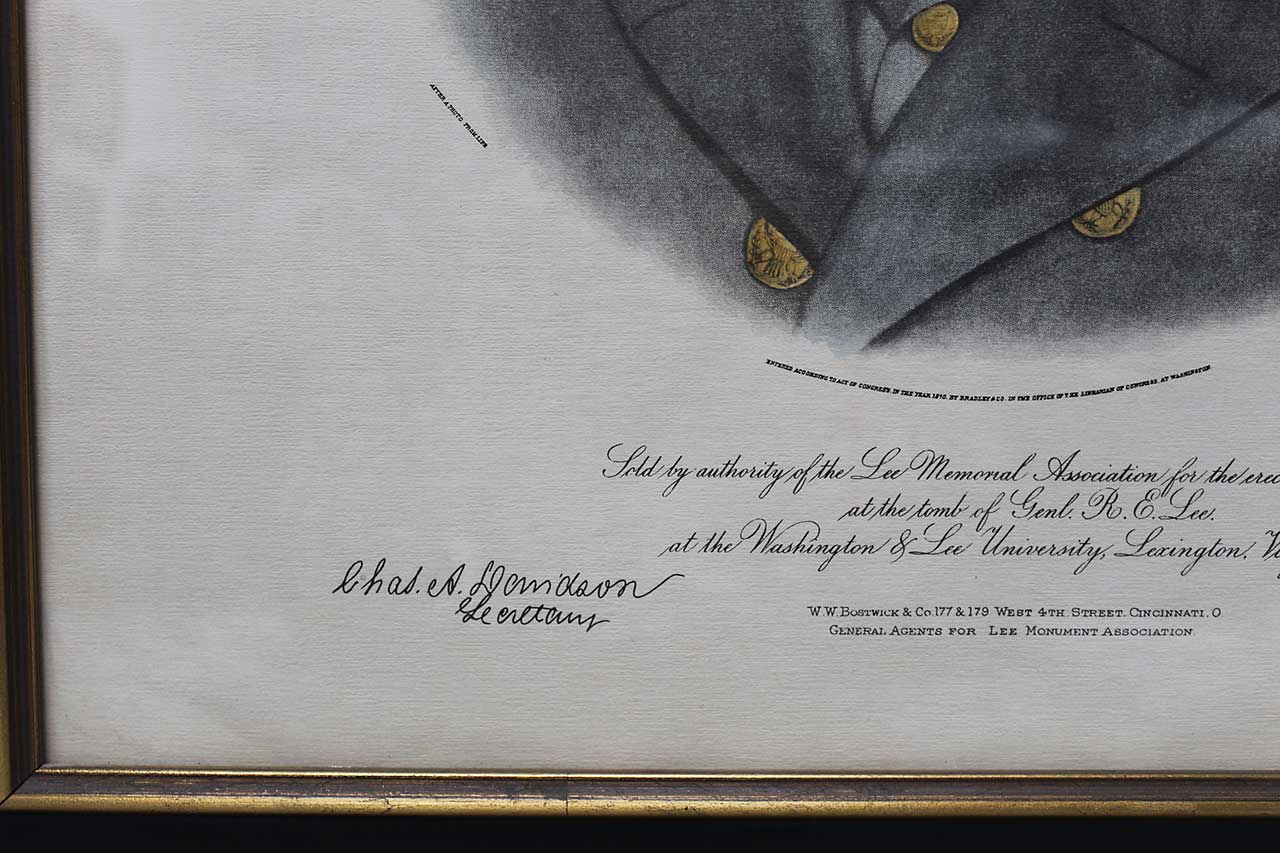 AFTER A PHOTO FROM LIFE
ENTERED ACCORDING TO ACT OF CONGRESS IN THE YEAR 1870, BY BRADLEY & CO. IN THE OFFICE OF THE LIBRARIAN OF CONGRESS, AT WASHINGTON
Sold by authority of the Lee Memorial Association for the erec
at the tomb of Genl. R. E. Lee.
at the Washington & Lee University, Lexington, V
Chas. A. Davidson
Secretary
W. W. BOSTWICK & Co. 177 & 179 WEST 4TH STREET. CINCINNATI. O.
GENERAL AGENTS FOR LEE MONUMENT ASSOCIATION